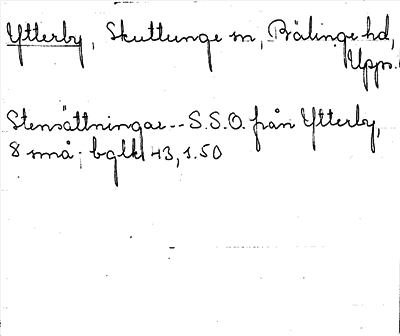 Ytterby, Skuttunge sn, Bälinge hd,
Upps.
Stensättningar -- S.S.O. från Ytterby,
8 små; bglkl 43, 1.50